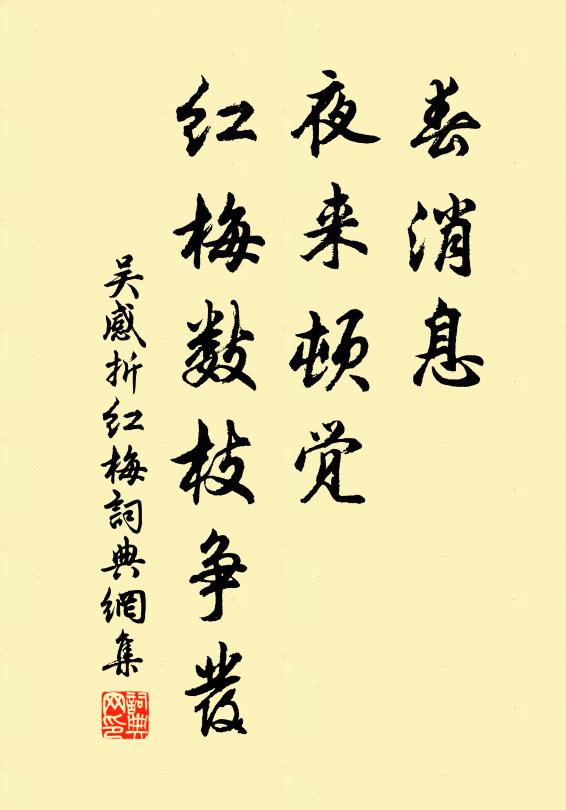 春消息
夜来顿觉
红梅数枝争发
吴感折红梅詞典網集
詞典网印